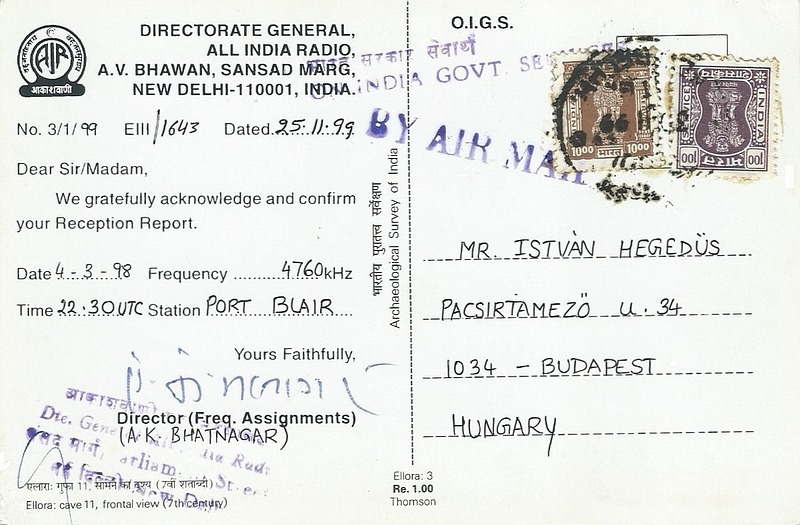 AIR
आकाशवाणी
DIRECTORATE GENERAL,
ALL INDIA RADIO,
A.V. BHAWAN, SANSAD MARG,
NEW DELHI-110001, INDIA.
No. 3/1/99 EIII/1643 Dated. 25.11.99
Dear Sir/Madam,
We gratefully acknowledge and confirm
your Reception Report.
Date 4-3-98 Frequency 4760 kHz
Time 22:30 UTC Station PORT BLAIR
Yours Faithfully,
Director (Freq. Assignments)
(A.K. BHATNAGAR)
आकाशवाणी
Dte. Gene
संसद मार्ग, arliam St.
नई दिल्ली New De
एलोरा: गुफा 11, सामने का दृश्य (7वीं शताब्दी)
Ellora: cave 11, frontal view (7th century)
भारतीय पुरातत्त्व सर्वेक्षण
Archaeological Survey of India
Ellora: 3
Re. 1.00
Thomson
O.I.G.S.
भारत सरकार सेवार्थ
INDIA GOVT. SE
BY AIR MAI
1000 भारत 1000
SERVICE
INDIA
100 भारत 100
MR. ISTVÀN HEGEDÜS
PACSIRTAMEZÖ U. 34
1034 - BUDAPEST
HUNGARY